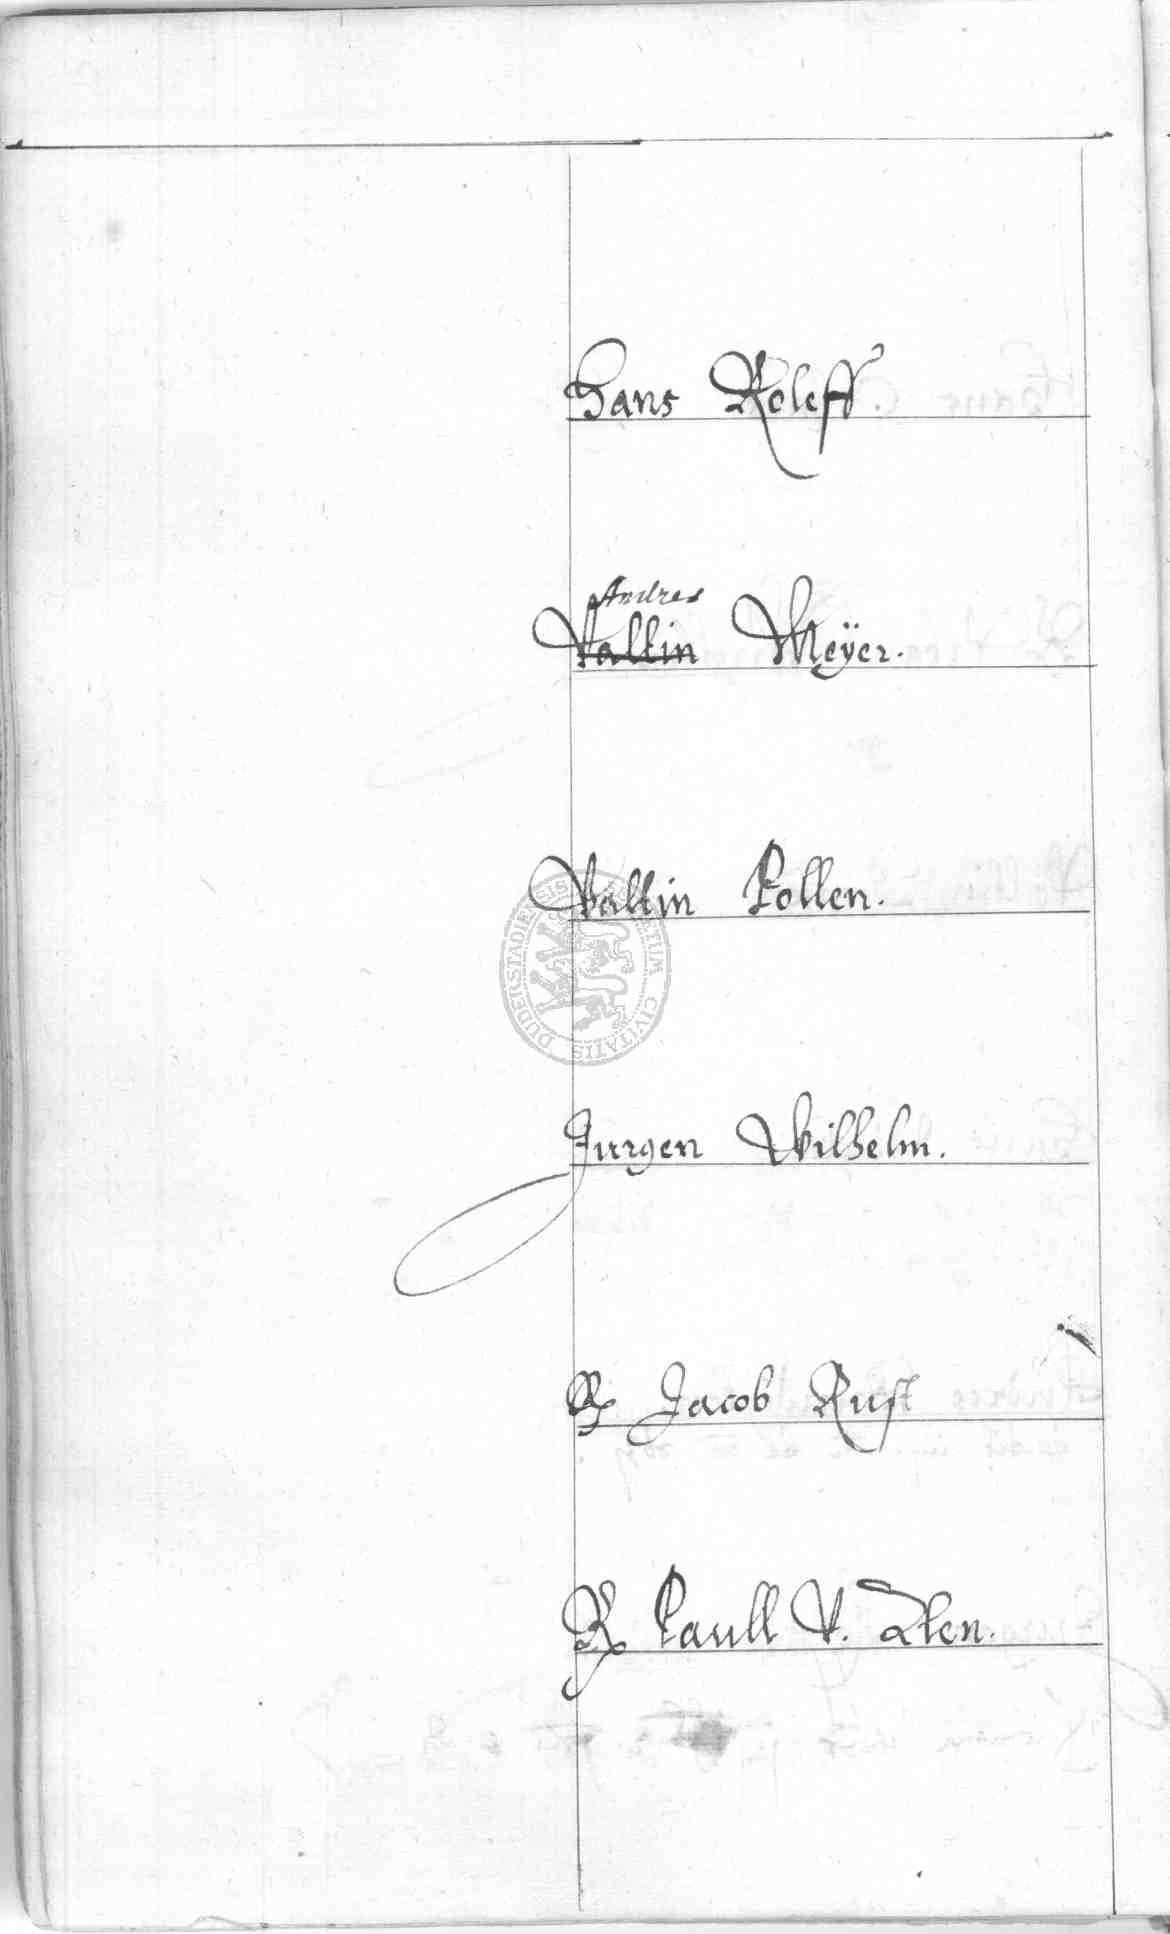 Hans Roleff
Andres
Valtin Meÿer.
Valtin Pollen.
Jurgen Wilhelm.
R Jacob Rust
R Paull V. Zlen.
DUDERSTADIENSIS CIVITATIS